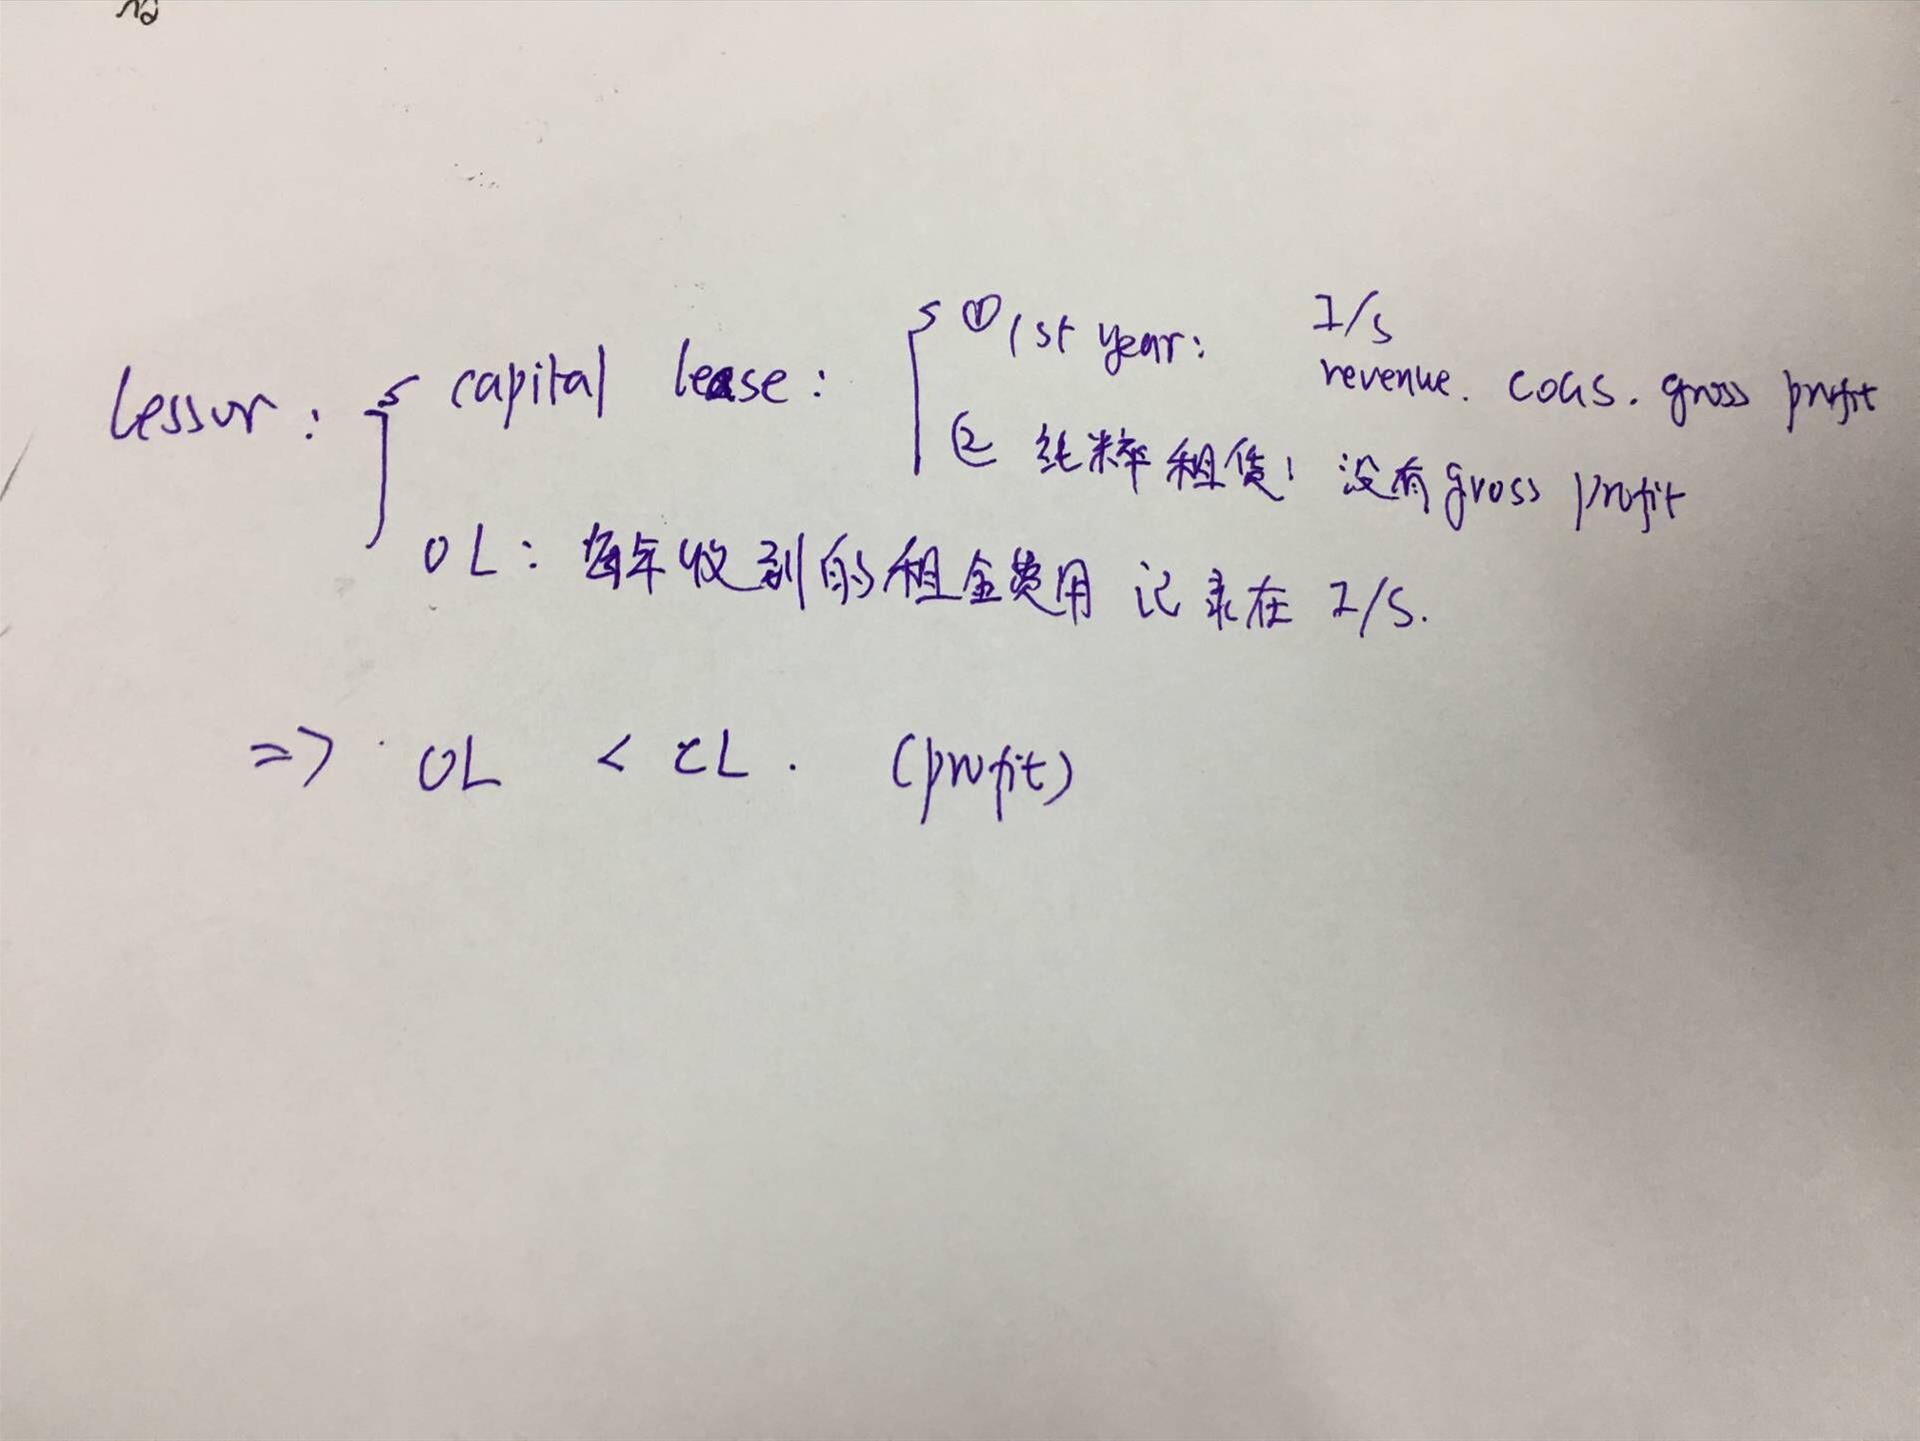 I/S
lessor: capital lease: ① 1st year: revenue. COGS. gross profit
② 纯粹租赁! 没有gross profit
OL: 每年收到的租金费用 记录在 I/S.
=> OL < CL. (profit)